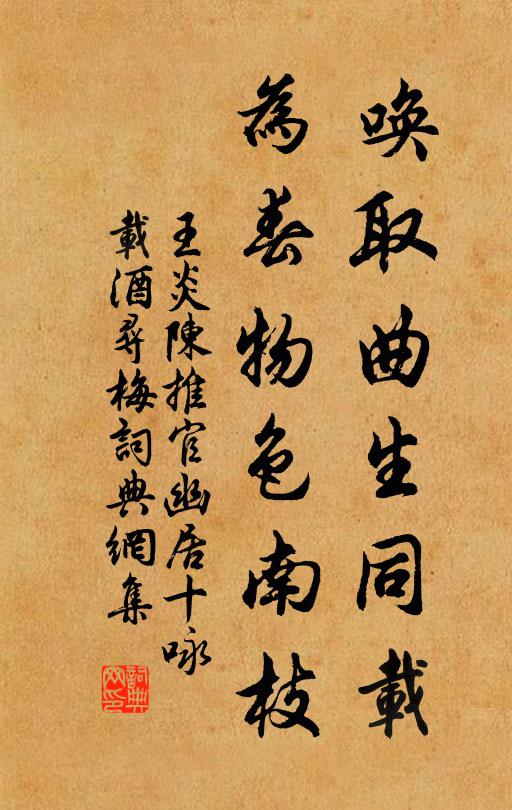 喚取曲生同載
為春物色南枝
王炎陳推官幽居十咏
載酒尋梅詞典網集
詞典網印